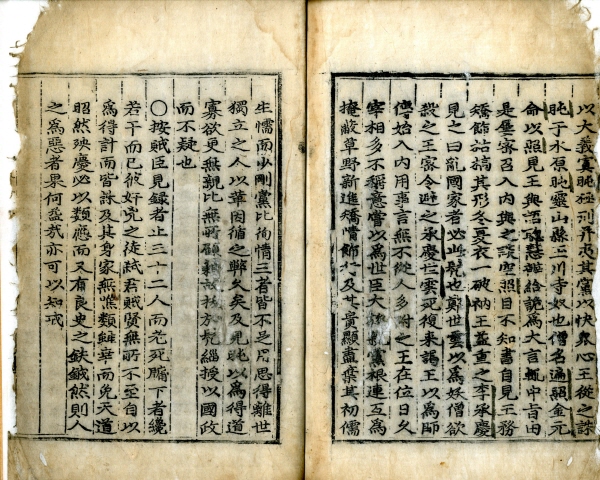 以大義寘旽極刑幷夷其黨以快衆心王從之誅
旽于水原旽靈山縣玉川寺奴也僧名遍照金元
命以照見王與語聰慧辯給詭爲大言輒中旨由
是屢密召入內與之談空照目不知書自見王務
矯飾詁槁其形冬夏衣一破衲王益重之李承慶
見之曰亂國家者必此髡也鄭世雲以爲妖僧欲
殺之王密令避之承慶世雲死後來謁王以爲師
傅始入內用事言無不從人多附之王在位日久
宰相多不稱意嘗以爲世臣大族親黨根連互爲
掩蔽草野新進矯情飾行及其貴顯盡棄其初儒
生懦而少剛黨比徇情三者皆不足用思得離世
獨立之人以革因循之弊久矣及見旽以爲得道
寡欲更無親比無所顧藉故拔於髡緇授以國政
而不疑也
○按賊臣見錄者止三十二人而老死牖下者纔
若干而已彼奸宄之徒弑君賊賢無所不至自以
爲得計而皆誅及其身家無噍類雖幸而免天道
昭然殃慶必以類應而又有良史之鈇鉞然則人
之爲惡者果何益哉亦可以知戒